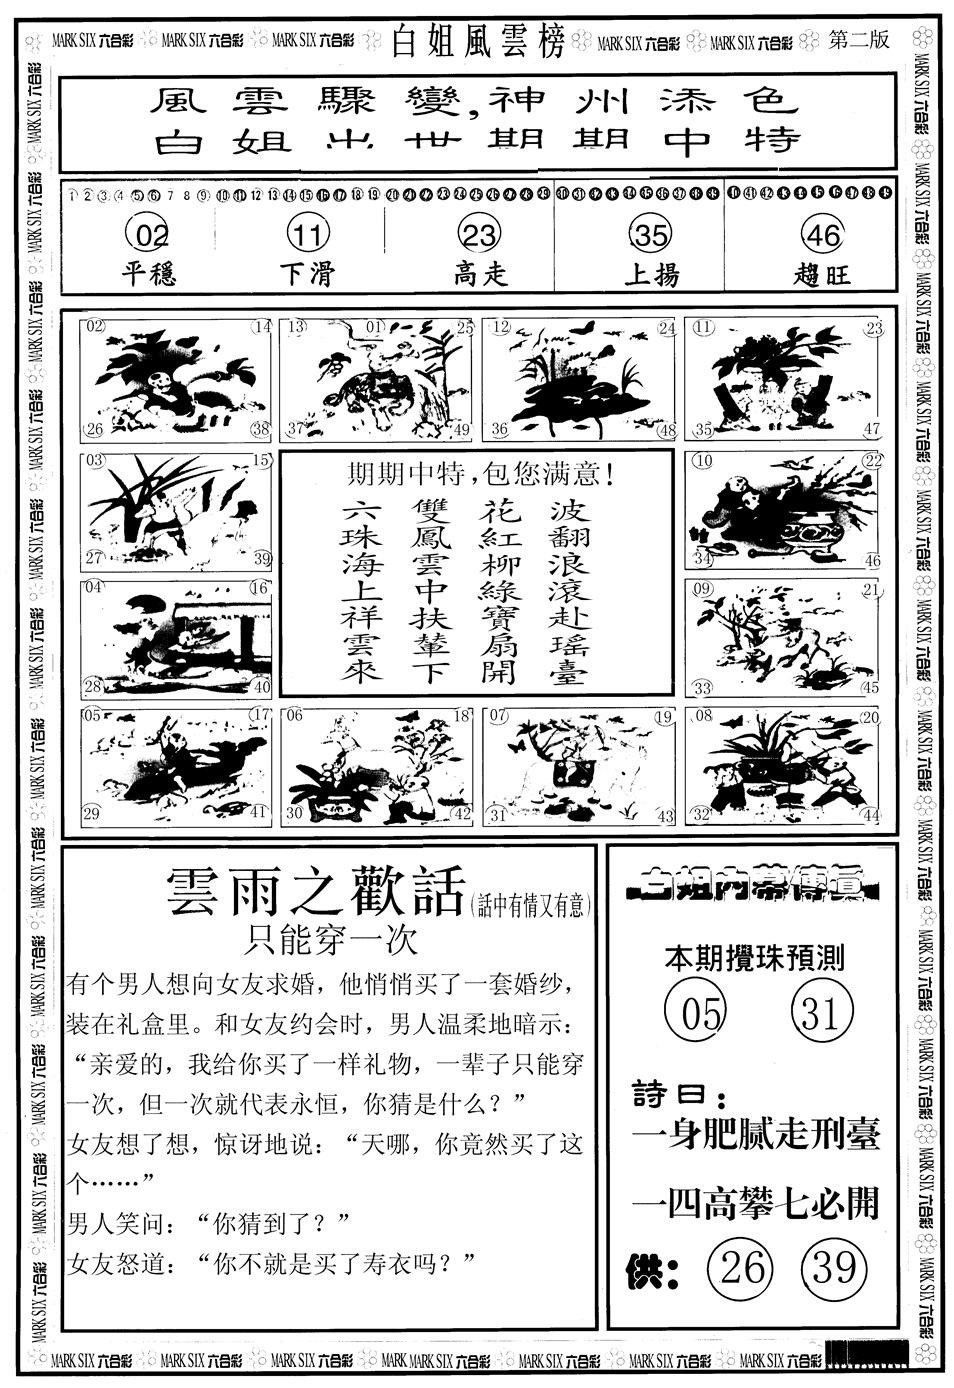 MARK SIX 六合彩 MARK SIX 六合彩 MARK SIX 六合彩 白姐風雲榜 MARK SIX 六合彩 MARK SIX 六合彩 第二版
風雲驟變,神州添色
白姐出世期期中特
1 2 3 4 5 6 7 8 9 10 11 12 13 14 15 16 17 18 19 20 21 22 23 24 25 26 27 28 29 30 31 32 33 34 35 36 37 38 39 40 41 42 43 44 45 46 47 48 49
02 11 23 35 46
平穩 下滑 高走 上揚 趨旺
02 14 13 01 25 12 24 11 23
26 38 37 49 36 48 35 47
03 15 10 22
27 39 34 46
04 16 09 21
28 40 33 45
05 17 06 18 07 19 08 20
29 41 30 42 31 43 32 44
期期中特,包您满意!
波翻浪滾赴瑶臺
花紅柳綠寶扇開
雙鳳雲中扶輦下
六珠海上祥雲來
雲雨之歡話(話中有情又有意)
只能穿一次
有个男人想向女友求婚，他悄悄买了一套婚纱，
装在礼盒里。和女友约会时，男人温柔地暗示：
“亲爱的，我给你买了一样礼物，一辈子只能穿
一次，但一次就代表永恒，你猜是什么？”
女友想了想，惊讶地说：“天哪，你竟然买了这
个……”
男人笑问：“你猜到了？”
女友怒道：“你不就是买了寿衣吗？”
白姐内幕傳真
本期攪珠預測
05 31
詩曰：
一身肥腻走刑臺
一四高攀七必開
供： 26 39
MARK SIX 六合彩 MARK SIX 六合彩 MARK SIX 六合彩 MARK MARK SIX 六合彩 MARK SIX 六合彩 MARK SIX 六合彩 MARK SIX 六合彩